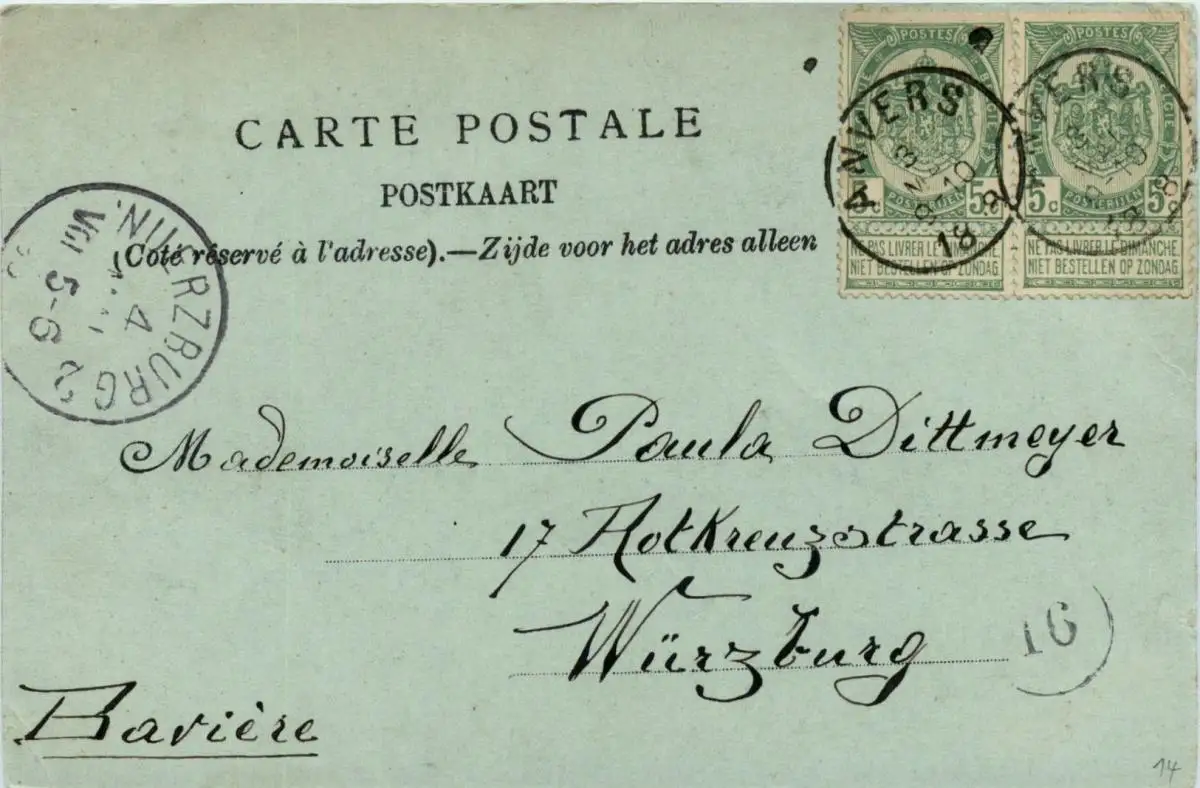 CARTE POSTALE
POSTKAART
(Coté réservé à l'adresse).—Zijde voor het adres alleen
POSTES POSTES
5c 5c 5c 5c
POSTERIJEN POSTERIJEN
NE PAS LIVRER LE DIMANCHE. NE PAS LIVRER LE DIMANCHE.
NIET BESTELLEN OP ZONDAG NIET BESTELLEN OP ZONDAG
ANVERS
3
10
18
ANVERS
WUERZBURG 2
4
5-6
Mademoiselle Paula Dittmeyer
17 Rotkreuzstrasse
Würzburg
16
Bavière
14